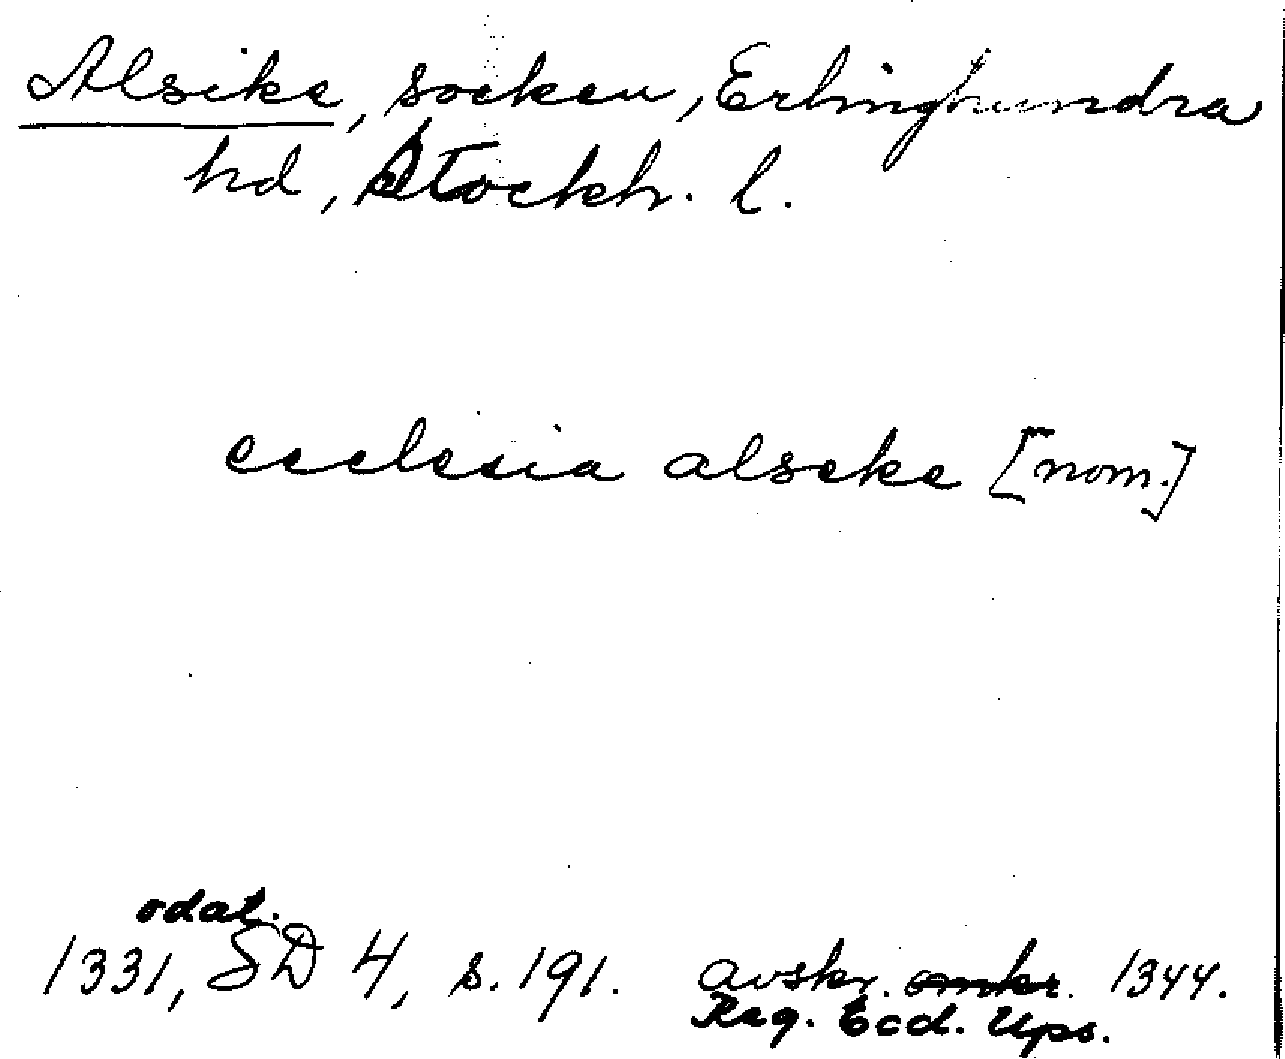 Alsike, socken, Erlinghundra
hd, Stockh. l.
ecclesia alseke [nom.]
odat.
1331, SD 4, s. 191. avskr. omkr. 1344.
Reg. Eccl. Ups.